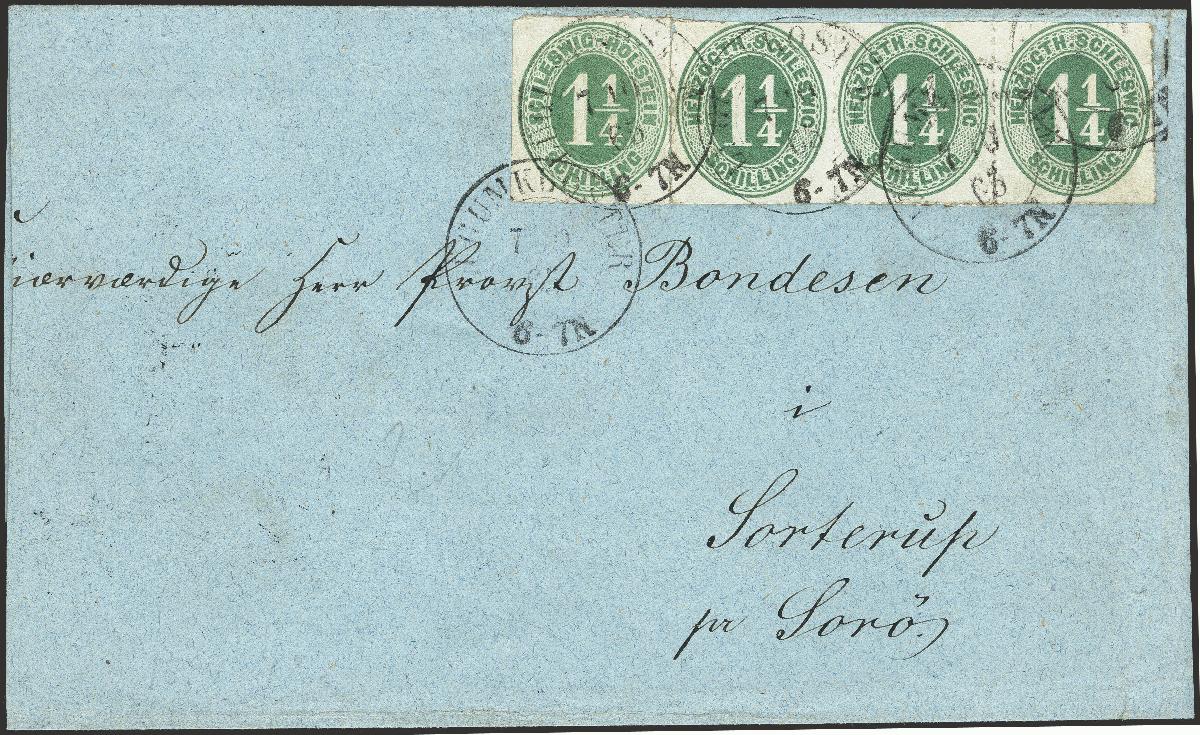 SCHLESWIG-HOLSTEIN 1 1/4 SCHILLING
HERZOGTH. SCHLESWIG 1 1/4 SCHILLING
HERZOGTH. SCHLESWIG 1 1/4 SCHILLING
HERZOGTH. SCHLESWIG 1 1/4 SCHILLING
6-7N
6-7N
6-7N
6-7N
Herr Provst Bondesen
i
Sorterup
pr Sorö